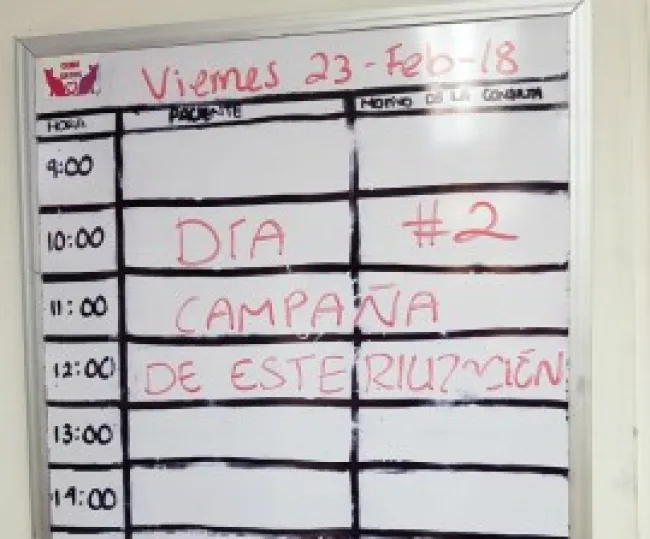 Viernes 23-Feb-18
HORA PACIENTE MOTIVO DE LA CONSULTA
9:00
10:00 DÍA #2
11:00 CAMPAÑA
12:00 DE ESTERILIZACIÓN
13:00
14:00